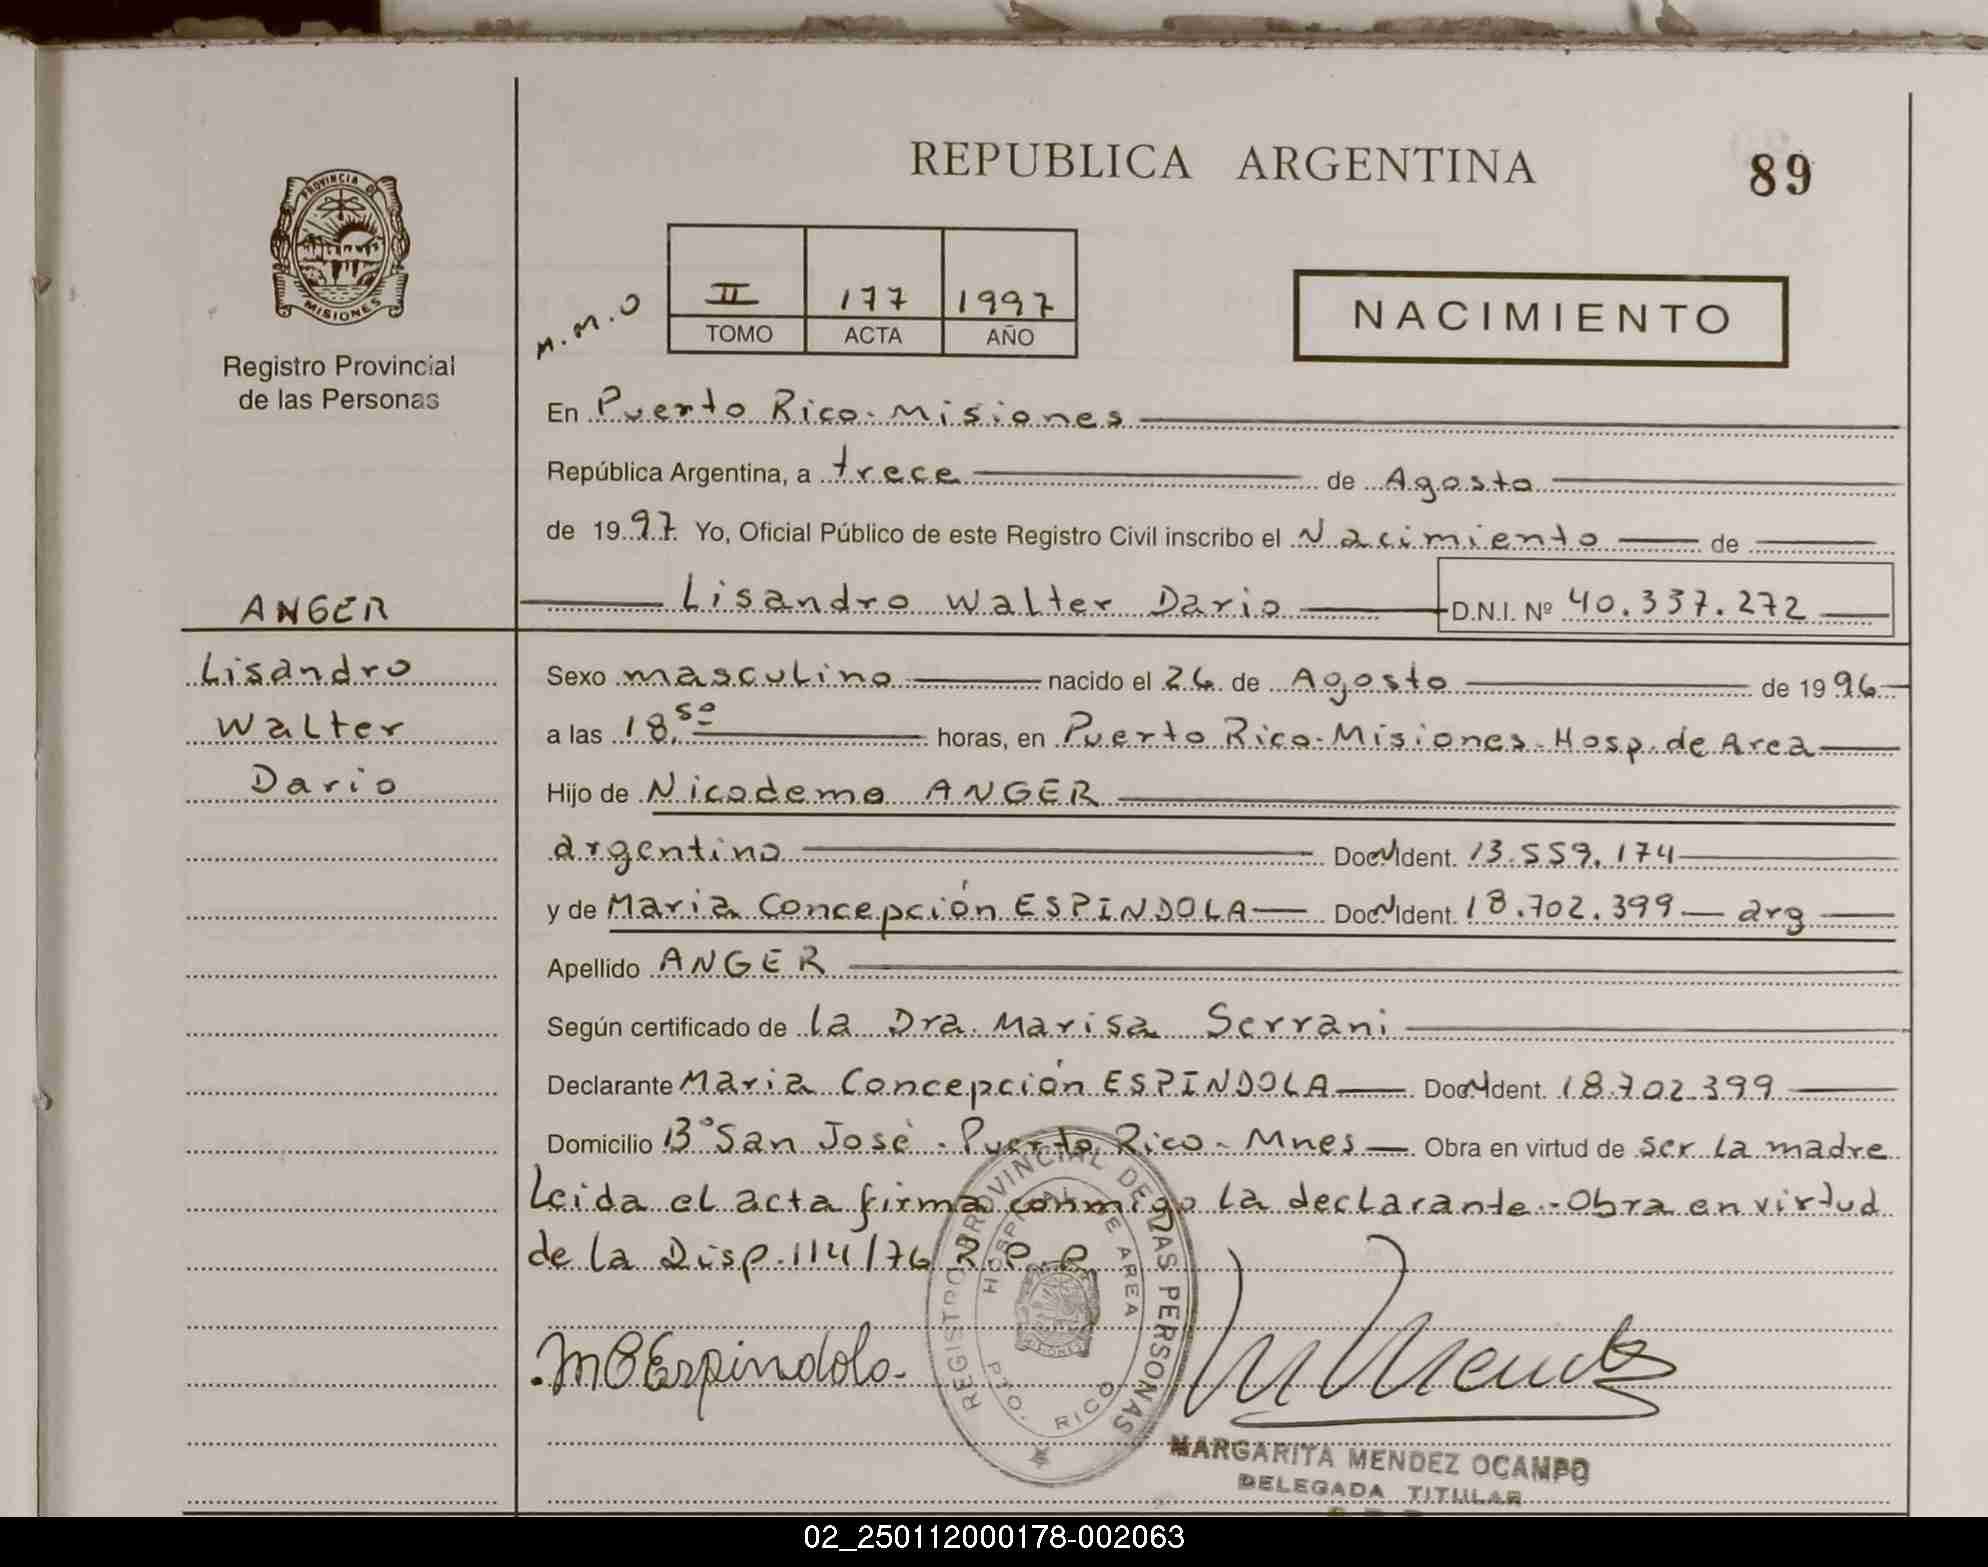 REPUBLICA ARGENTINA
89
PROVINCIA D
MISIONES
Registro Provincial
de las Personas
M.M.O
II 177 1997
TOMO ACTA AÑO
NACIMIENTO
En Puerto Rico-Misiones
República Argentina, a trece de Agosto
de 1997. Yo, Oficial Público de este Registro Civil inscribo el Nacimiento de
ANGER
Lisandro Walter Dario D.N.I. Nº 40.337.272
Lisandro
Walter
Dario
Sexo masculino nacido el 26 de Agosto de 1996
a las 18.50 horas, en Puerto Rico-Misiones-Hosp. de Area
Hijo de Nicodemo ANGER
argentino Doc. Ident. 13.559.174
y de Maria Concepción ESPINDOLA Doc. Ident. 18.702.399 arg
Apellido ANGER
Según certificado de la Dra. Marisa Serrani
Declarante Maria Concepción ESPINDOLA Doc. Ident. 18.702.399
Domicilio Bº San José - Puerto Rico - Mnes Obra en virtud de ser la madre
Leida el acta firma conmigo la declarante - Obra en virtud
de la Disp. 114/76 R.P.P.
MC Espindola
M Mendez
REGISTRO PROVINCIAL DE LAS PERSONAS
HOSPITAL DE AREA
PTO. RICO
MARGARITA MENDEZ OCAMPO
DELEGADA TITULAR
02_250112000178-002063